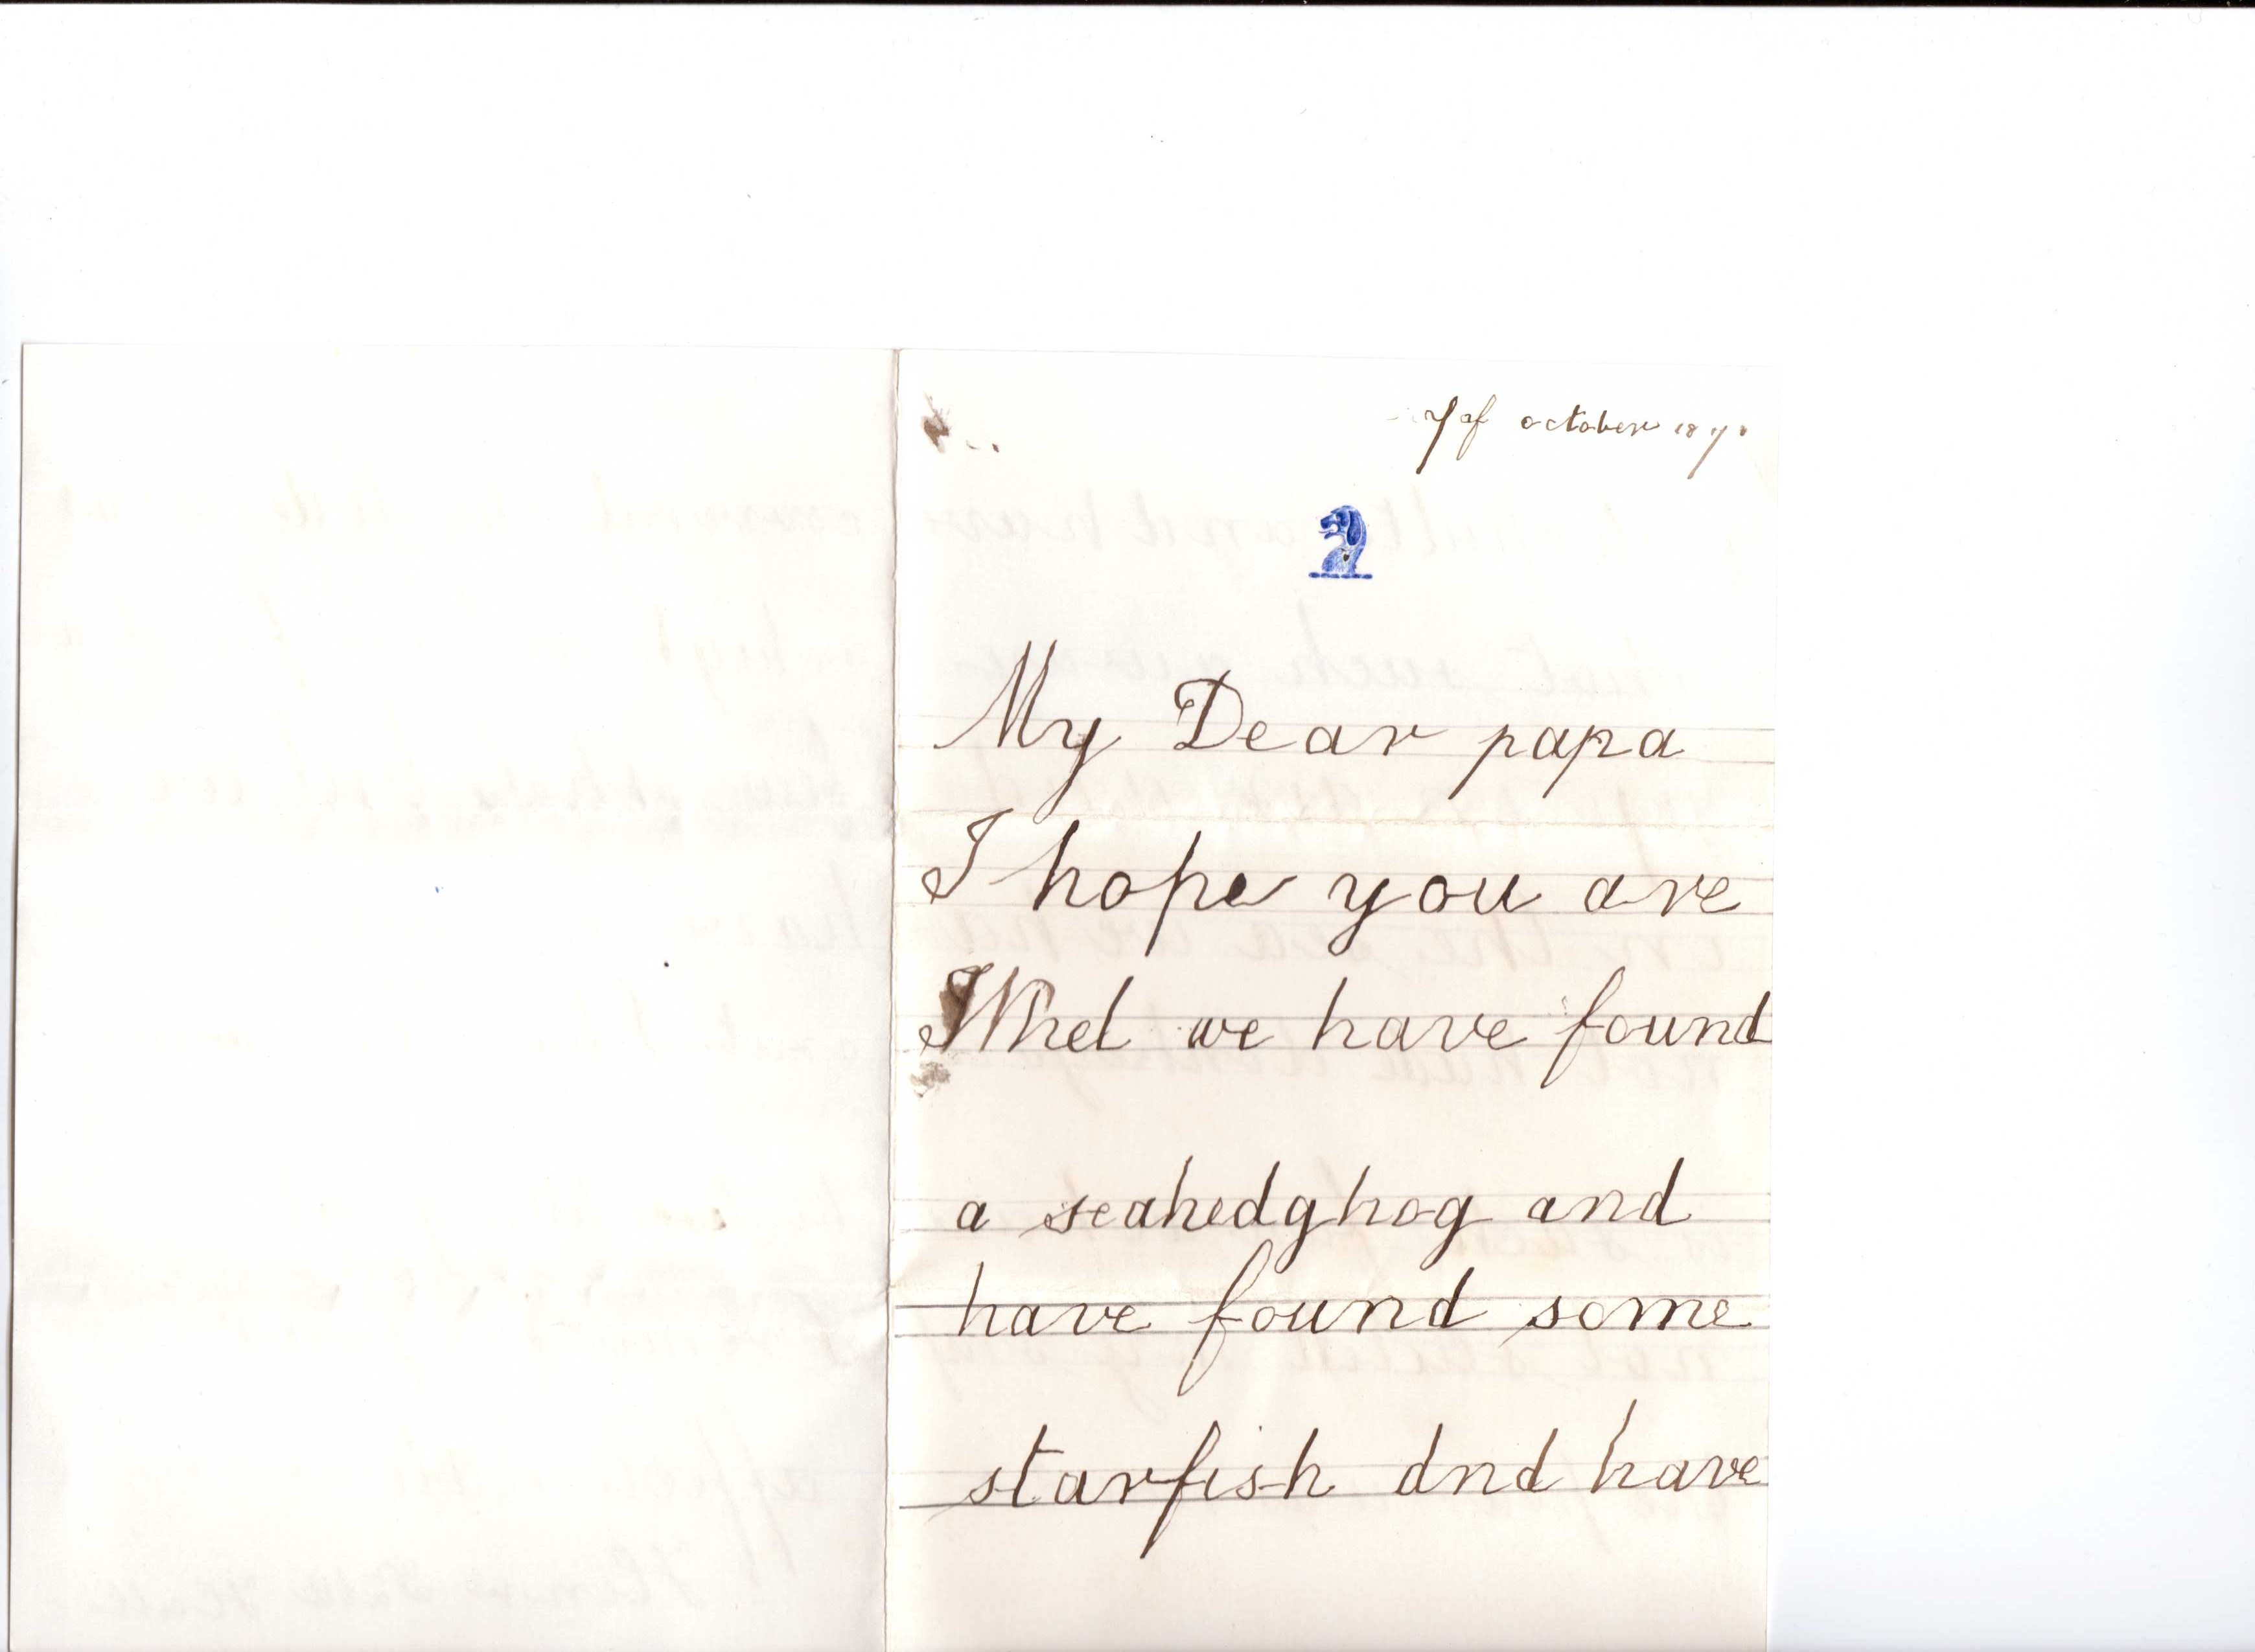 7 of october 187
My Dear papa
I hope you are
Whel we have found
a seahedghog and
have found some
starfish dnd have